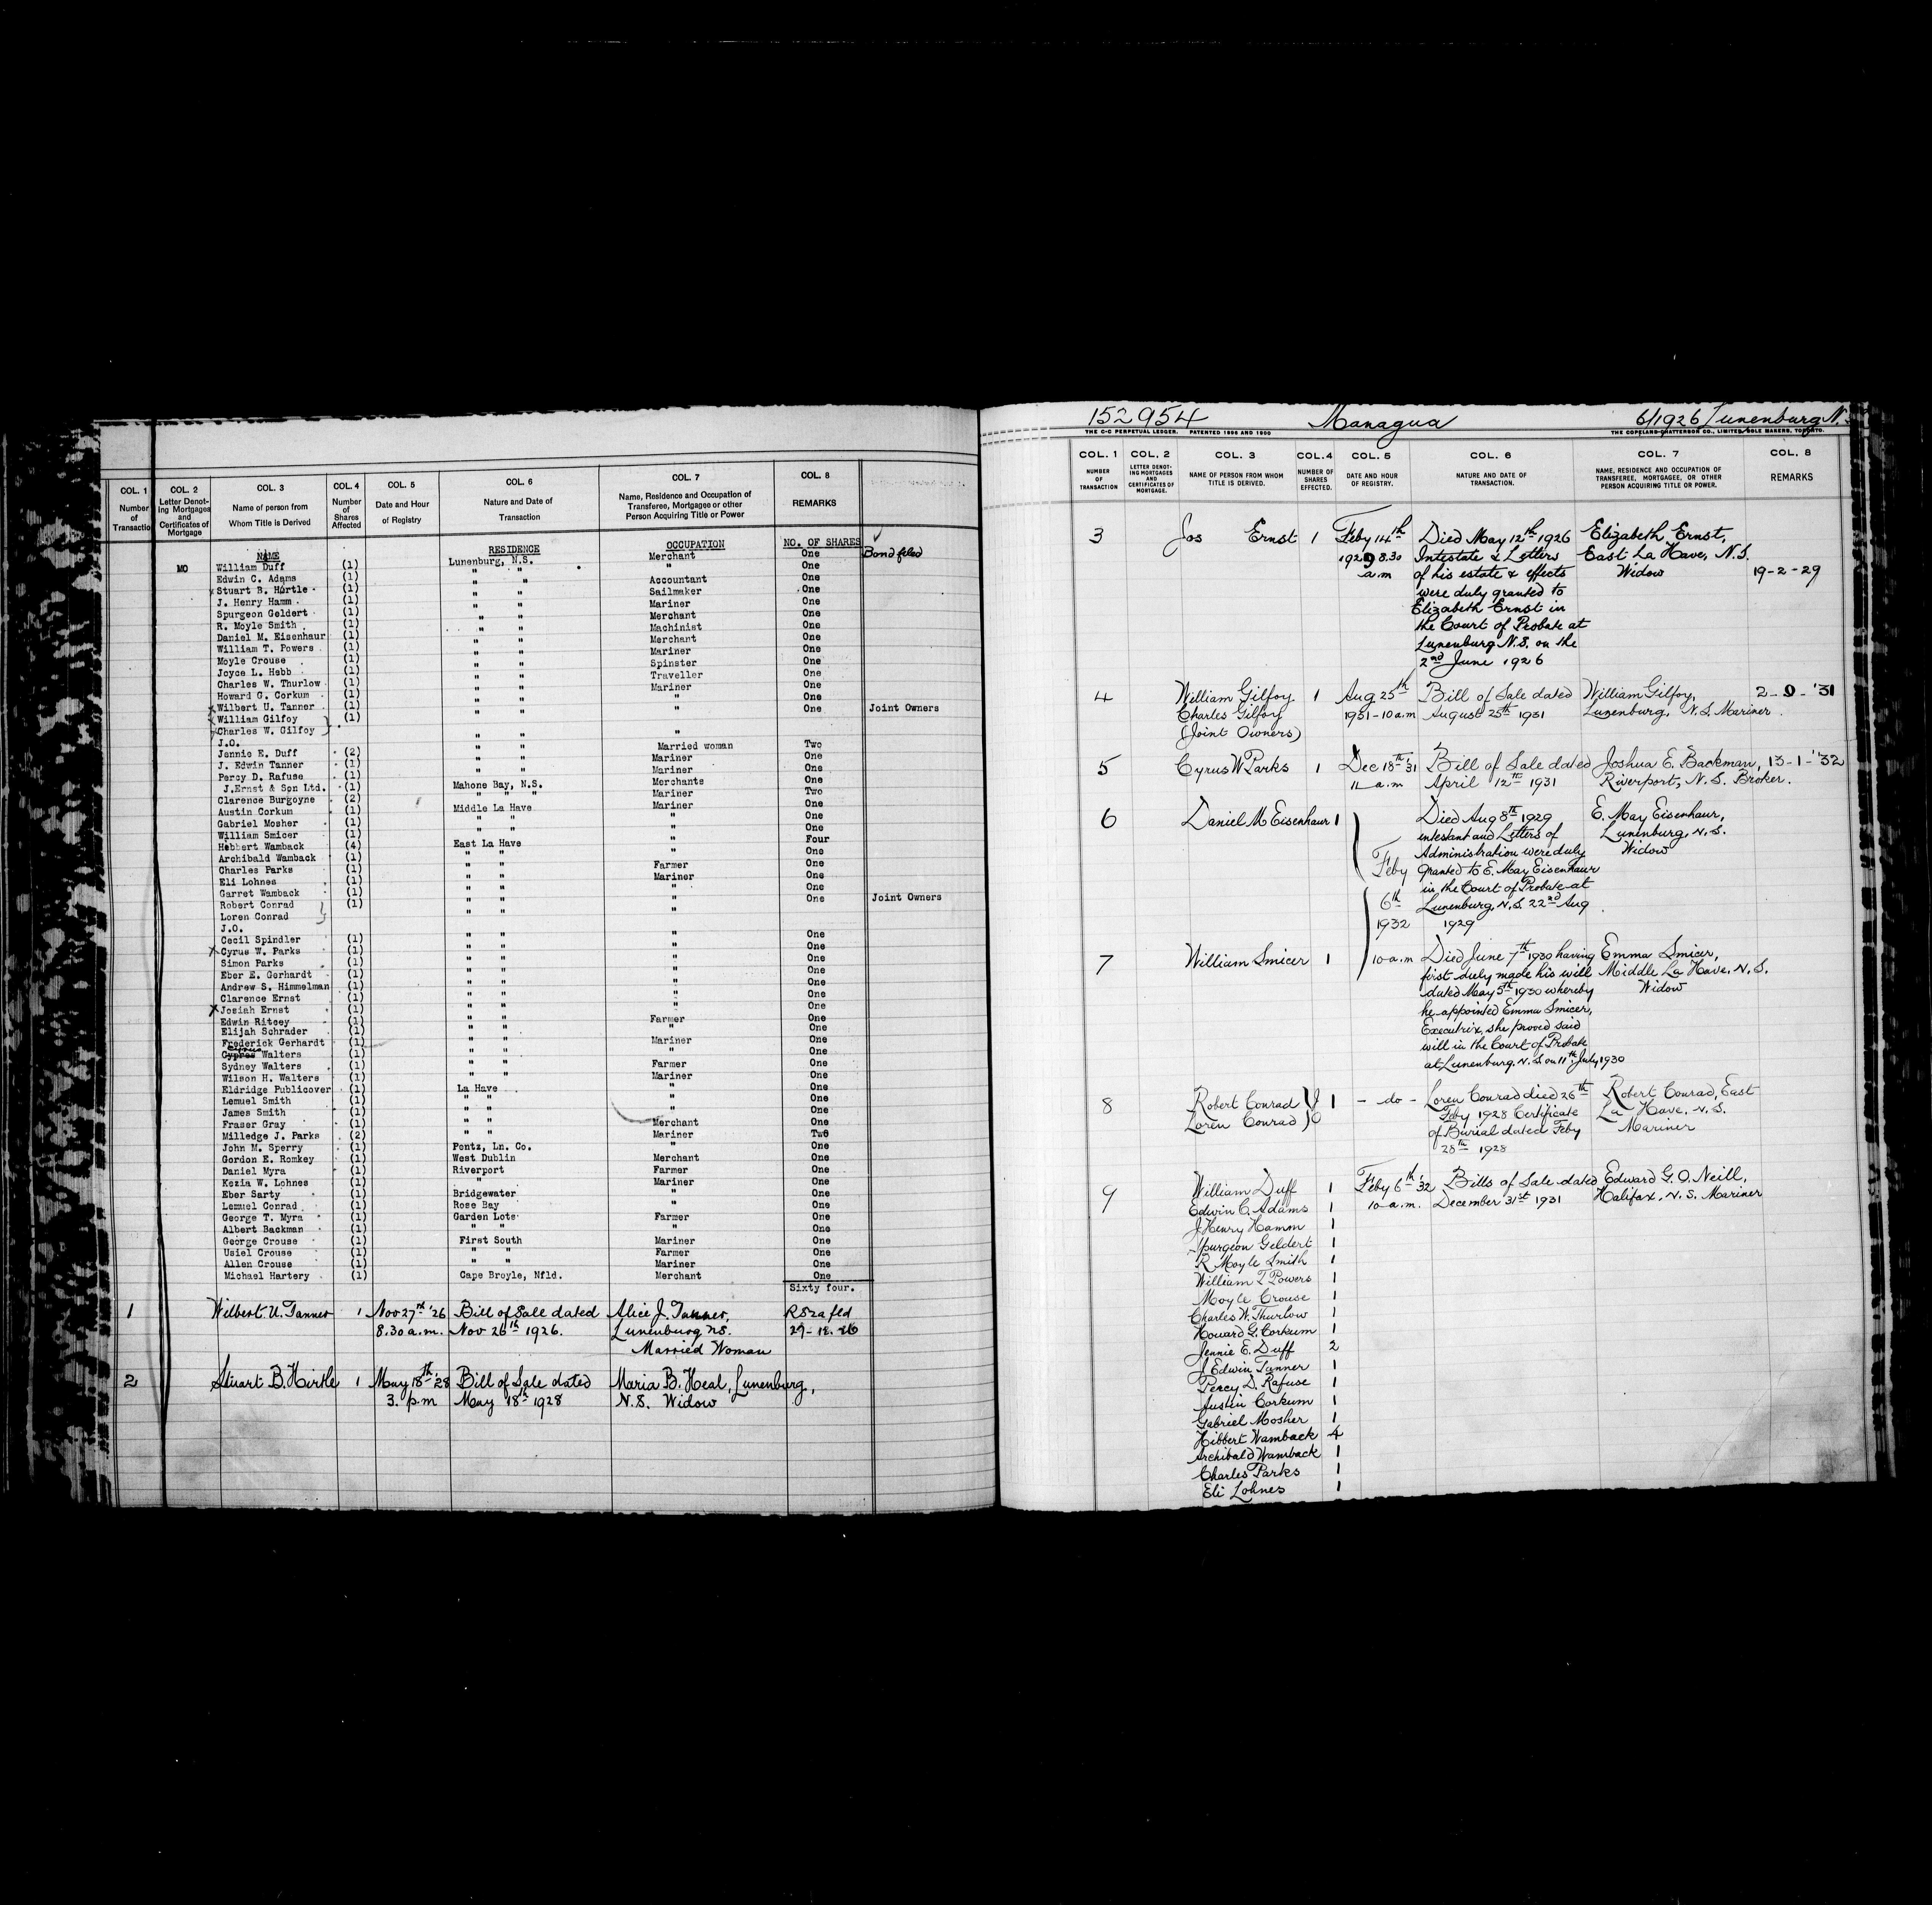 COL. 1 COL. 2 COL. 3 COL. 4 COL. 5 COL. 6 COL. 7 COL. 8
Number of Transaction
Letter Denoting Mortgages and Certificates of Mortgage
Name of person from Whom Title is Derived
Number of Shares Affected
Date and Hour of Registry
Nature and Date of Transaction
Name, Residence and Occupation of Transferee, Mortgagee or other Person Acquiring Title or Power
REMARKS
NAME RESIDENCE OCCUPATION NO. OF SHARES
MO William Duff (1) Lunenburg, N.S. Merchant One Bond filed
Edwin C. Adams (1) " " " One
Stuart B. Hirtle (1) " " Accountant One
J. Henry Hamm (1) " " Sailmaker One
Spurgeon Geldert (1) " " Mariner One
R. Moyle Smith (1) " " Merchant One
Daniel M. Eisenhaur (1) " " Machinist One
William T. Powers (1) " " Merchant One
Moyle Crouse (1) " " Mariner One
Joyce L. Hebb (1) " " Spinster One
Charles W. Thurlow (1) " " Traveller One
Howard G. Corkum (1) " " Mariner One
x Wilbert U. Tanner (1) " " " One
William Gilfoy (1) " " " One Joint Owners
Charles W. Gilfoy }
J.O. " " "
Jennie E. Duff (2) " " Married woman Two
J. Edwin Tanner (1) " " Mariner One
Percy D. Rafuse (1) " " Mariner One
J.Ernst & Son Ltd. (1) Mahone Bay, N.S. Merchants One
Clarence Burgoyne (2) " " " Mariner Two
Austin Corkum (1) Middle La Have Mariner One
Gabriel Mosher (1) " " " One
William Smicer (1) " " " One
Hebbert Wamback (4) East La Have " Four
Archibald Wamback (1) " " " One
Charles Parks (1) " " Farmer One
Eli Lohnes (1) " " Mariner One
Garret Wamback (1) " " " One
Robert Conrad (1) " " " One Joint Owners
Loren Conrad } " " "
J.O.
Cecil Spindler (1) " " " One
x Cyrus W. Parks (1) " " " One
Simon Parks (1) " " " One
Eber E. Gerhardt (1) " " " One
Andrew S. Himmelman (1) " " " One
Clarence Ernst (1) " " " One
x Josiah Ernst (1) " " " One
Edwin Ritcey (1) " " Farmer One
Elijah Schrader (1) " " " One
Frederick Gerhardt (1) " " Mariner One
Cyrus Walters (1) " " " One
Sydney Walters (1) " " Farmer One
Wilson H. Walters (1) " " Mariner One
Eldridge Publicover (1) La Have " One
Lemuel Smith (1) " " " One
James Smith (1) " " " One
Fraser Gray (1) " " Merchant One
Milledge J. Parks (2) " " Mariner Two
John M. Sperry (1) Pentz, Ln. Co. " One
Gordon E. Romkey (1) West Dublin Merchant One
Daniel Myra (1) Riverport Farmer One
Kezia W. Lohnes (1) " Mariner One
Eber Sarty (1) Bridgewater " One
Lemuel Conrad (1) Rose Bay " One
George T. Myra (1) Garden Lots Farmer One
Albert Backman (1) " " " One
George Crouse (1) First South Mariner One
Usiel Crouse (1) " " Farmer One
Allen Crouse (1) " " Mariner One
Michael Hartery (1) Cape Broyle, Nfld. Merchant One
Sixty four.
1 Wilbert U. Tanner 1 Nov 27th '26 Bill of Sale dated Alice J. Tanner,
8.30 a.m. Nov 26th 1926. Lunenburg N.S. 29-12-26
Married Woman
2 Stuart B. Hirtle 1 May 18th '28 Bill of Sale dated Maria B. Heal, Lunenburg,
3. p.m May 18th 1928 N.S. Widow
152954 Managua 6/1926 Lunenburg N.
THE C-C PERPETUAL LEDGER. PATENTED 1896 AND 1900 THE COPELAND-CHATTERSON CO., LIMITED, SOLE MAKERS, TORONTO.
COL. 1 COL. 2 COL. 3 COL.4 COL. 5 COL. 6 COL. 7 COL. 8
NUMBER OF TRANSACTION
LETTER DENOTING MORTGAGES AND CERTIFICATES OF MORTGAGE.
NAME OF PERSON FROM WHOM TITLE IS DERIVED.
NUMBER OF SHARES EFFECTED.
DATE AND HOUR OF REGISTRY.
NATURE AND DATE OF TRANSACTION.
NAME, RESIDENCE AND OCCUPATION OF TRANSFEREE, MORTGAGEE, OR OTHER PERSON ACQUIRING TITLE OR POWER.
REMARKS
3 Jos Ernst 1 Feby 14th Died May 12th 1926 Elizabeth Ernst,
1929 8.30 Intestate & Letters East La Have, N.S.
a.m of his estate & effects Widow 19-2-29
were duly granted to
Elizabeth Ernst in
the Court of Probate at
Lunenburg N.S. on the
2nd June 1926
4 William Gilfoy 1 Aug 25th Bill of Sale dated William Gilfoy, 2-9-'31
Charles Gilfoy 1931-10a.m August 25th 1931 Lunenburg, N.S. Mariner.
(Joint Owners)
5 Cyrus W Parks 1 Dec 18th '31 Bill of Sale dated Joshua E. Backman, 13-1-'32
11 a.m April 12th 1931 Riverport, N.S. Broker.
6 Daniel M Eisenhaur 1 Died Aug 8th 1929 E. May Eisenhaur,
intestant and Letters of Lunenburg, N.S.
Administration were duly Widow
Feby granted to E. May Eisenhaur
in the Court of Probate at
6th Lunenburg, N.S. 22nd Aug
1932 1929
7 William Smicer 1 10 a.m Died June 7th 1930 having Emma Smicer,
first duly made his will Middle La Have, N.S.
dated May 5th 1930 whereby Widow
he appointed Emma Smicer,
Executrix, she proved said
will in the Court of Probate
at Lunenburg. N.S on 11th July, 1930
8 Robert Conrad ) J 1 - do - Loren Conrad died 26th Robert Conrad, East
Loren Conrad ) O Feby 1928 Certificate La Have. N.S.
of Burial dated Feby Mariner
28th 1928
9 William Duff 1 Feby 6th '32 Bills of Sale dated Edward G. O. Neill,
Edwin C. Adams 1 10 a.m. December 31st 1931 Halifax, N.S. Mariner
J Henry Hamm 1
Spurgeon Geldert 1
R Moyle Smith 1
William T Powers 1
Moyle Crouse 1
Charles W. Thurlow 1
Howard G. Corkum 1
Jennie E. Duff 2
J Edwin Tanner 1
Percy D. Rafuse 1
Austin Corkum 1
Gabriel Mosher 1
Hibbert Wamback 4
Archibald Wamback 1
Charles Parks 1
Eli Lohnes 1